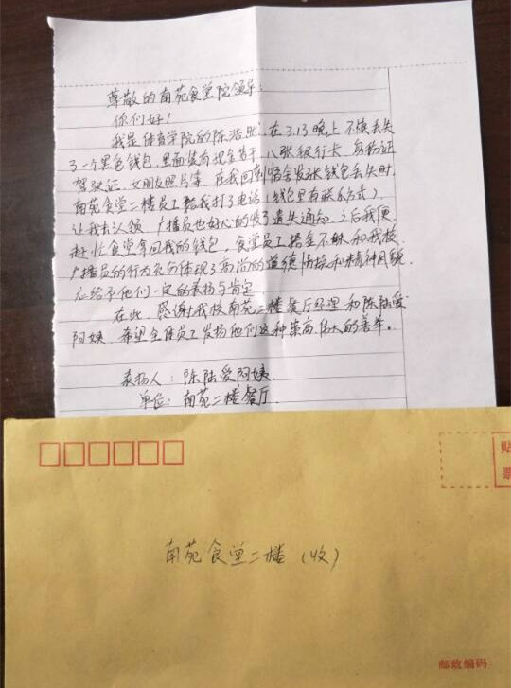 尊敬的南苑食堂院领导:
你们好!
我是体育学院的陈 在3.13晚上不慎丢失
了一个黑色钱包,里面装有现金若干,八张银行卡,身份证
驾驶证,女朋友照片等,在我回到宿舍发张钱包丢失时,
南苑食堂二楼员工给我打了电话(钱包里有联系方式)
让我去认领,广播员也好心的发了遗失通知,之后我便
赶忙食堂拿回我的钱包,食堂员工拾金不昧和我校
广播员的行为充分体现了高尚的道德 和精神风貌
应给予他们一定的表扬与肯定
在此,感谢我校南苑二楼餐厅经理和陈陆爱
阿姨,希望全体员工发扬他们这种崇高伟大的善举。
表扬人:陈陆爱阿姨
单位:南苑二楼餐厅
贴
票
南苑食堂二楼(收)
邮政编码